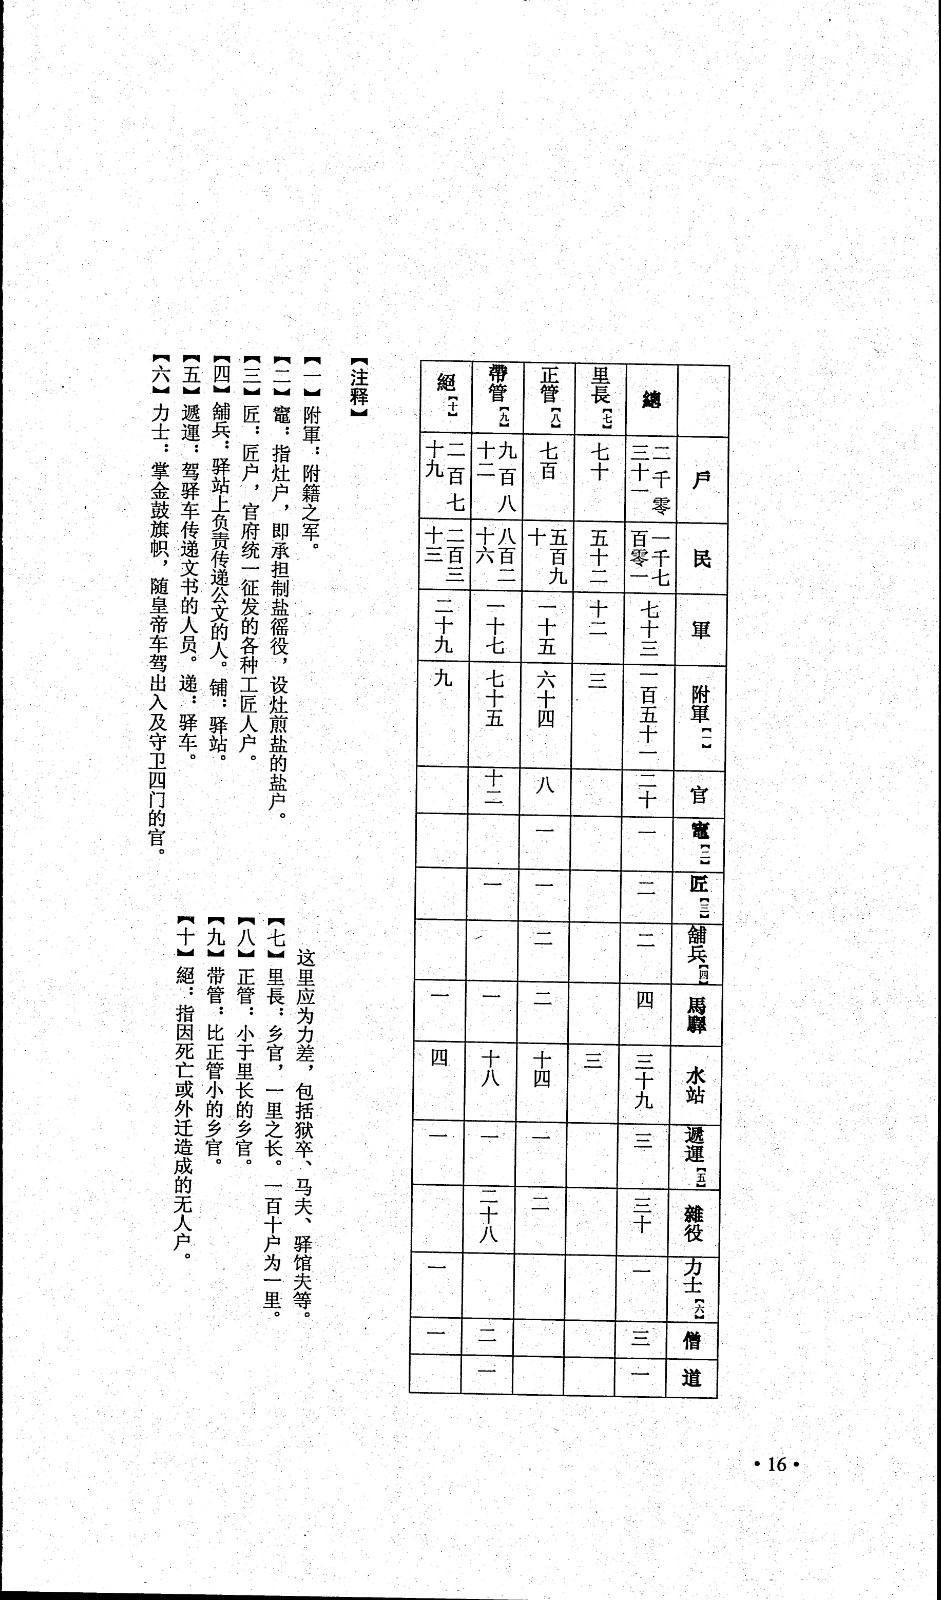 戶 民 軍 附軍【一】 官 竈【二】 匠【三】 舖兵【四】 馬驛 水站 遞運【五】 雜役 力士【六】 僧 道
總 二千零三十一 一千七百零一 七十三 一百五十一 二十 一 二 二 四 三十九 三 三十 一 三 一
里長【七】 七十 五十二 十二 三 三
正管【八】 七百 五百九十 一十五 六十四 八 一 一 二 二 十四 一 二
帶管【九】 九百八十二 八百二十六 一十七 七十五 十二 一 一 十八 一 二十八 二 一
絕【十】 二百七十九 二百三十三 二十九 九 一 四 一 一 一
【注释】
【一】附軍：附籍之军。
【二】竈：指灶户，即承担制盐徭役，设灶煎盐的盐户。
【三】匠：匠户，官府统一征发的各种工匠人户。
【四】舖兵：驿站上负责传递公文的人。铺：驿站。
【五】遞運：驾驿车传递文书的人员。递：驿车。
【六】力士：掌金鼓旗帜，随皇帝车驾出入及守卫四门的官。
这里应为力差，包括狱卒、马夫、驿馆夫等。
【七】里長：乡官，一里之长。一百十户为一里。
【八】正管：小于里长的乡官。
【九】带管：比正管小的乡官。
【十】絕：指因死亡或外迁造成的无人户。
·16·